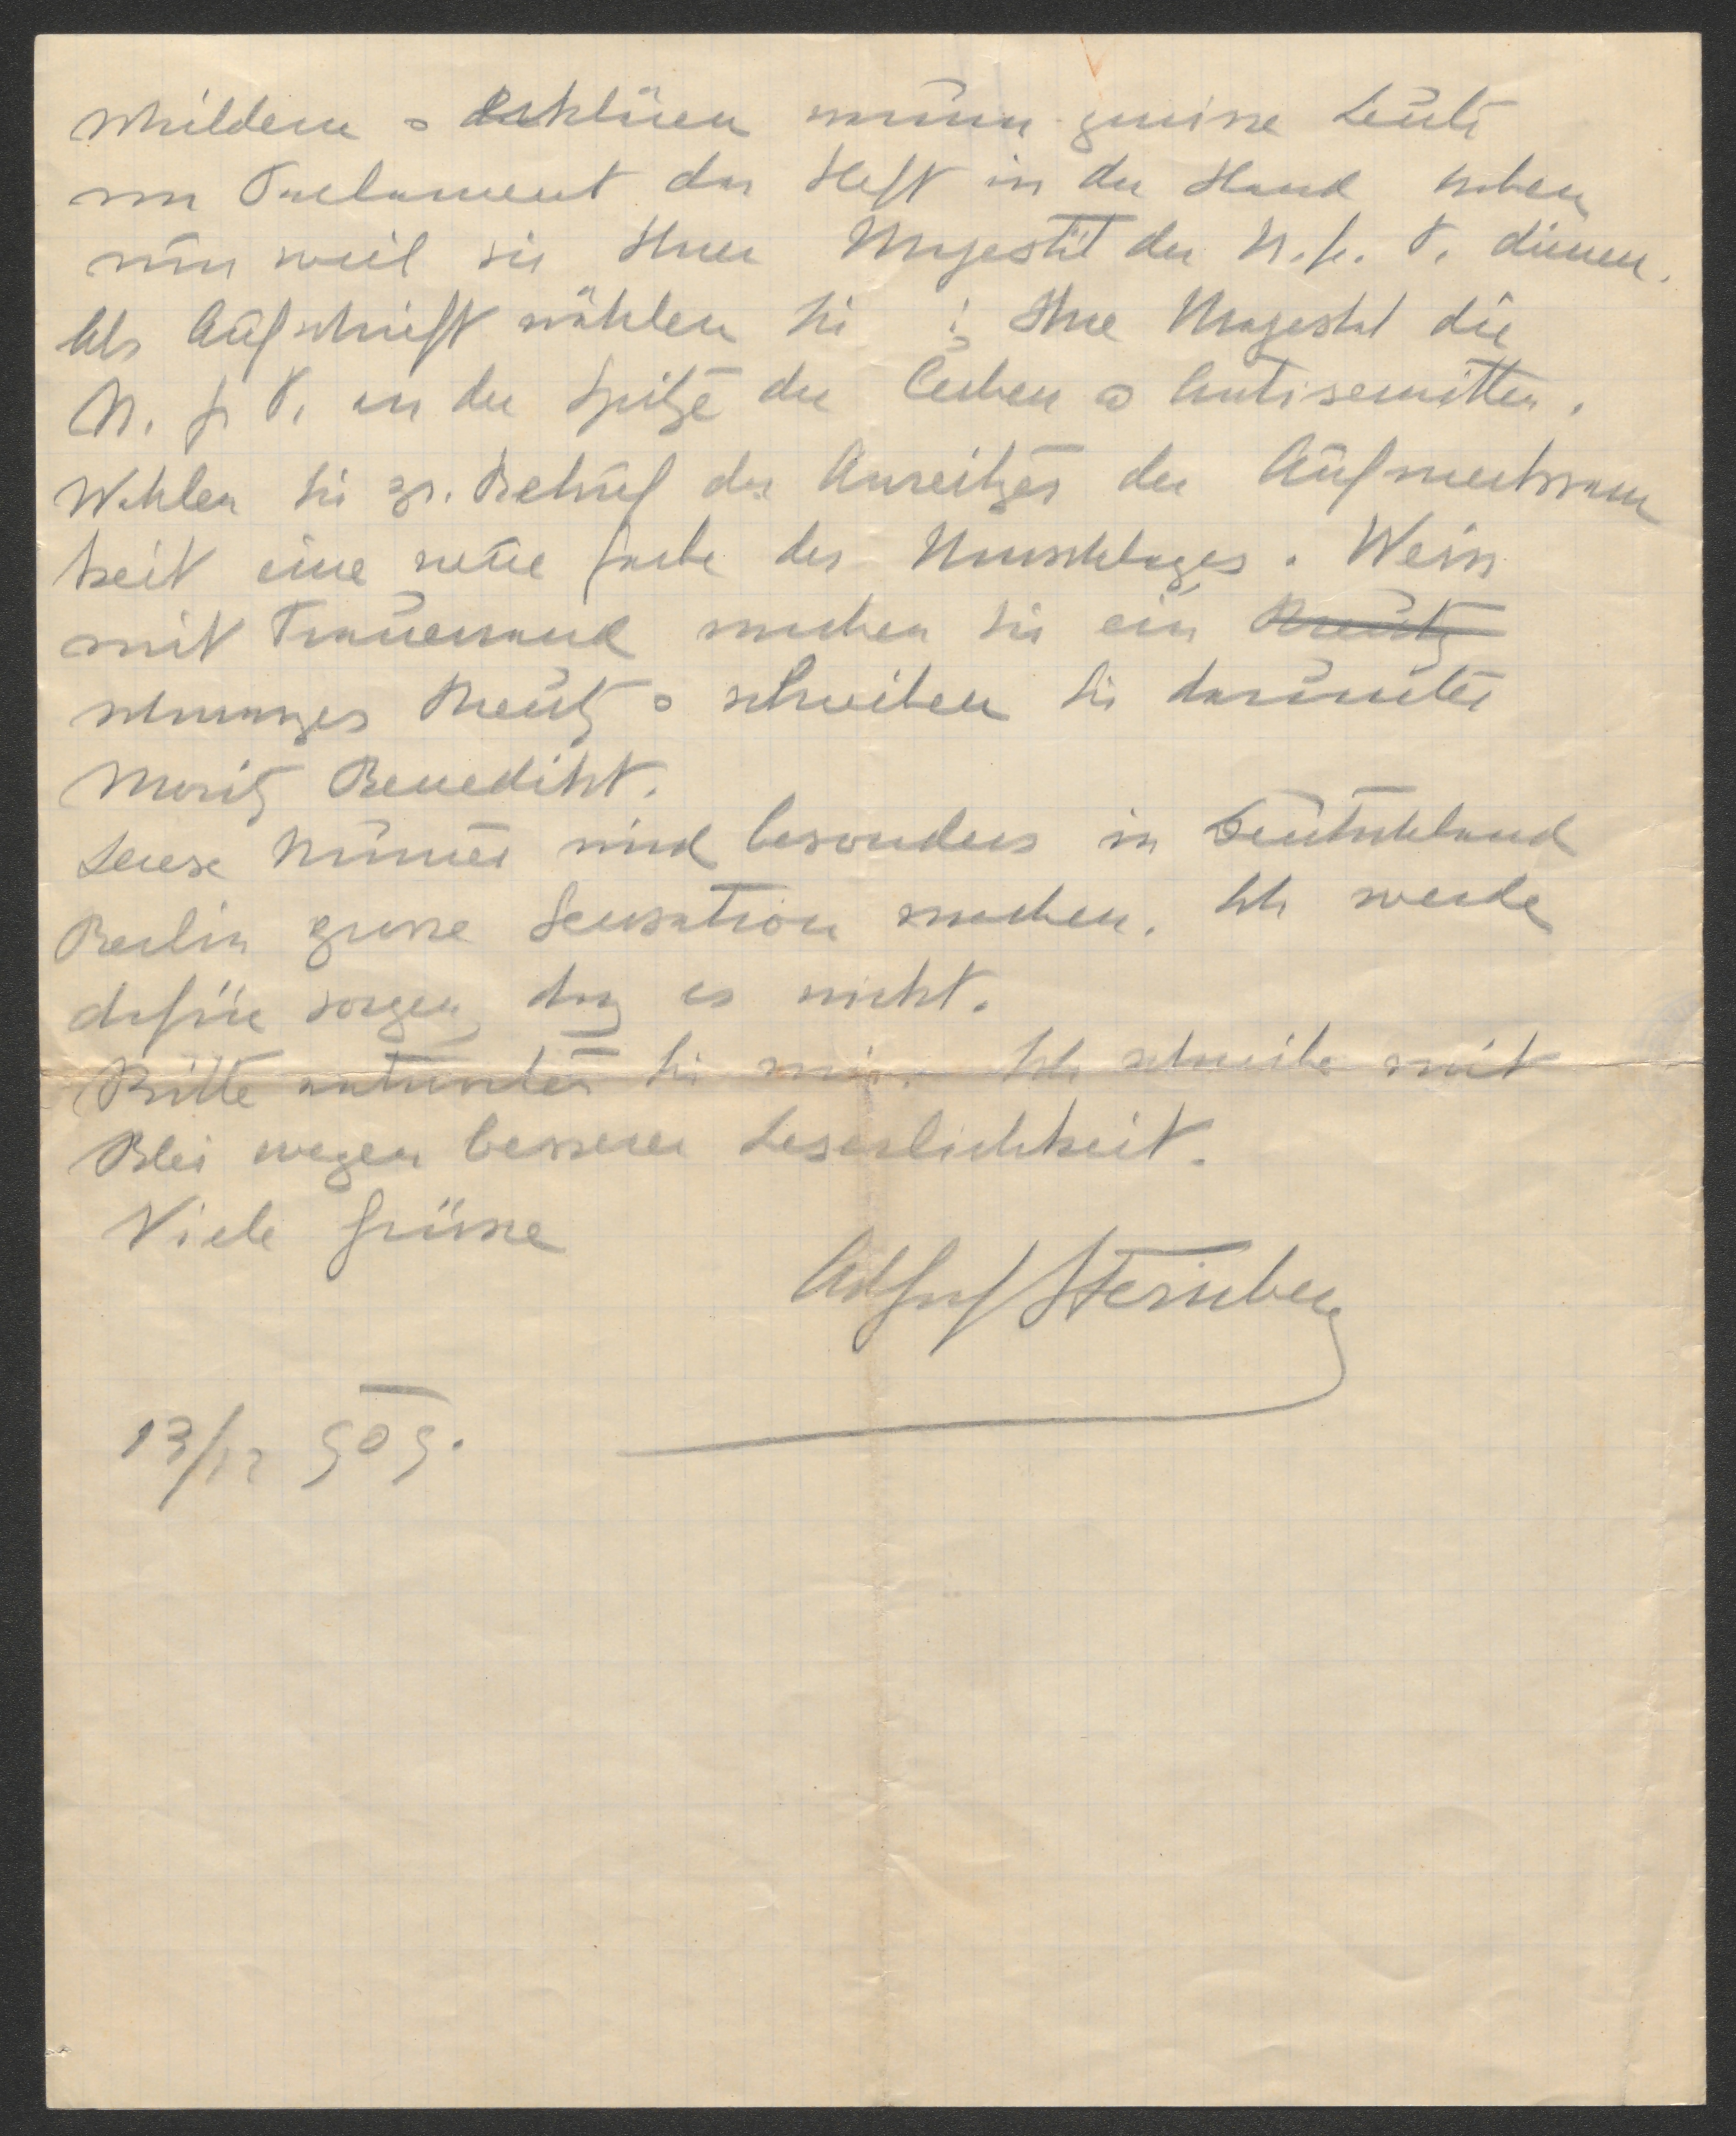 schildern u erklären warum gewisse Leute
im Parlament das Heft in der Hand haben
nur weil sie Ihrer Majestät der N. fr. P. dienen.
Als Aufschrift wählen Sie : Ihre Majestät die
N. fr P. an der Spitze der u Antisemitten.
Wählen Sie zr. Behuf des Anreitzes der Aufmerksam
keit eine neue Farbe des Umschlages. Weiss
mit Trauerrand machen Sie ein Kreutz
schwarzes Kreutz u schreiben Sie darunter
Moritz Benedikt.
Diese Numer wird besonders in Deutschland
Berlin grosse Sensation machen. Ich werde
dafür sorgen, daß es nicht.
Bitte antworten Sie mir. Ich schreibe mit
Blei wegen besserer Leserlichkeit.
Viele Grüsse
Sternberg
13/12 909.